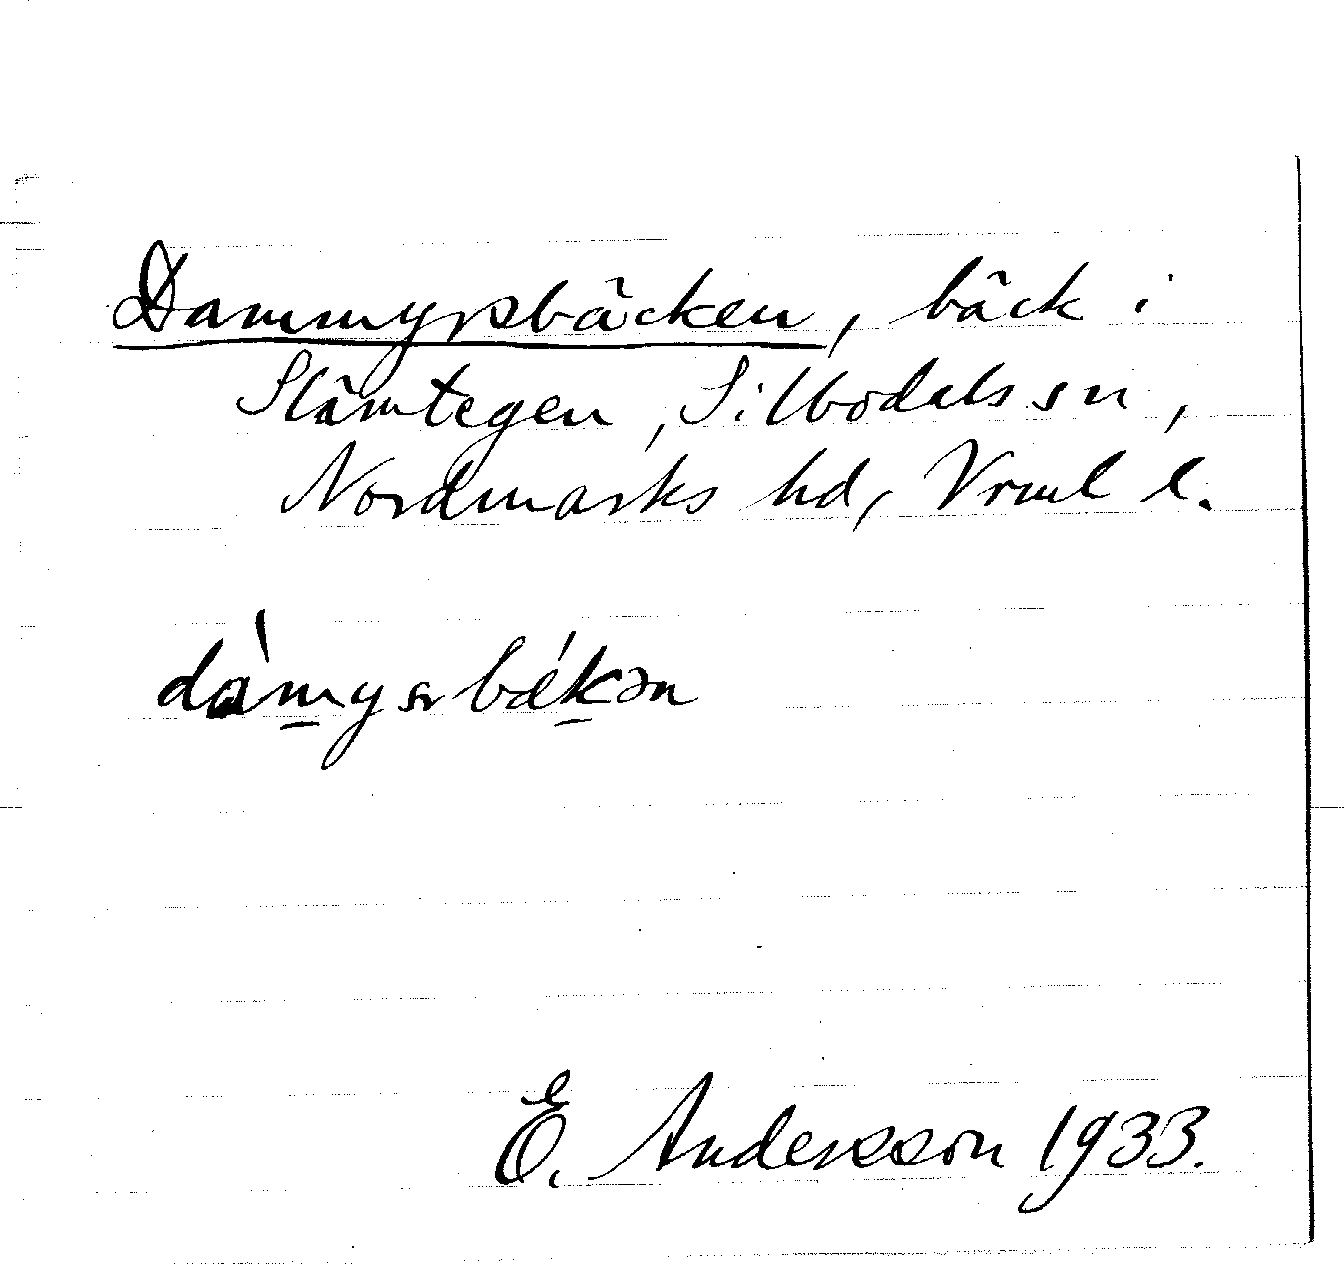 Dammyrsbäcken, bäck i
Slämtegen, Silbodals sn,
Nordmarks hd, Vrml l.
E. Andersson 1933.